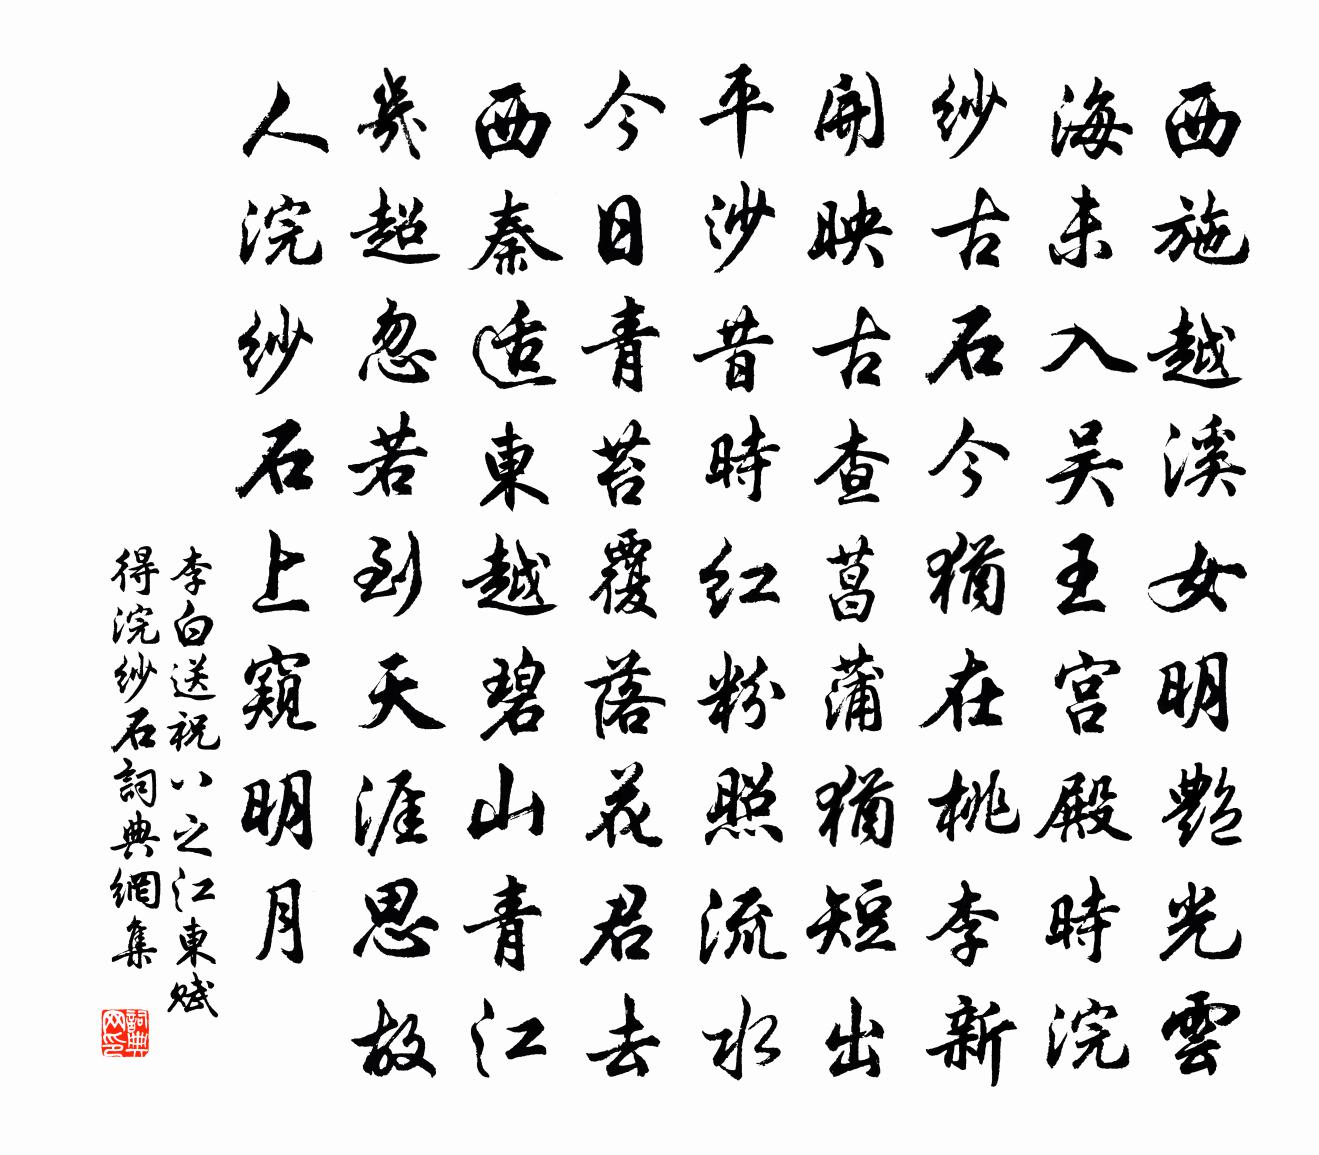 西施越溪女明艷光雲
海未入吴王宫殿時浣
紗古石今猶在桃李新
開映古查菖蒲猶短出
平沙昔時红粉照流水
今日青苔覆落花君去
西秦适東越碧山青江
幾超忽若到天涯思故
人浣紗石上窺明月
李白送祝八之江東赋
得浣紗石詞典網集
詞典网印